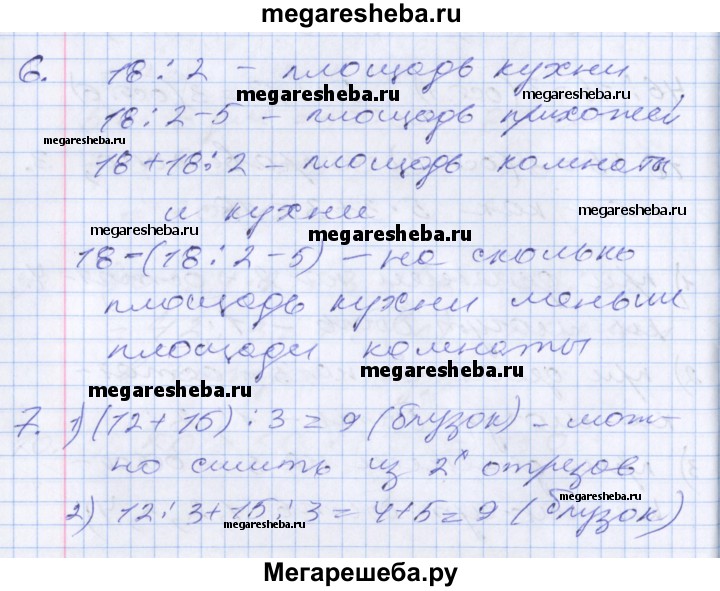 megaresheba.ru
6. 18 : 2 – площадь кухни
megaresheba.ru
megaresheba.ru
18 : 2 – 5 – площадь прихожей
megaresheba.ru
18 + 18 : 2 – площадь комнаты
и кухни
megaresheba.ru
megaresheba.ru
megaresheba.ru
18 – (18 : 2 – 5) – на сколько
площадь кухни меньш
площади комнаты
megaresheba.ru
megaresheba.ru
7. 1) (12 + 15) : 3 = 9 (блузок) – мож-
но сшить из 2х отрезов
megaresheba.ru
2) 12 : 3 + 15 : 3 = 4 + 5 = 9 (блузок)
megaresheba.ru
Мегарешеба.ру